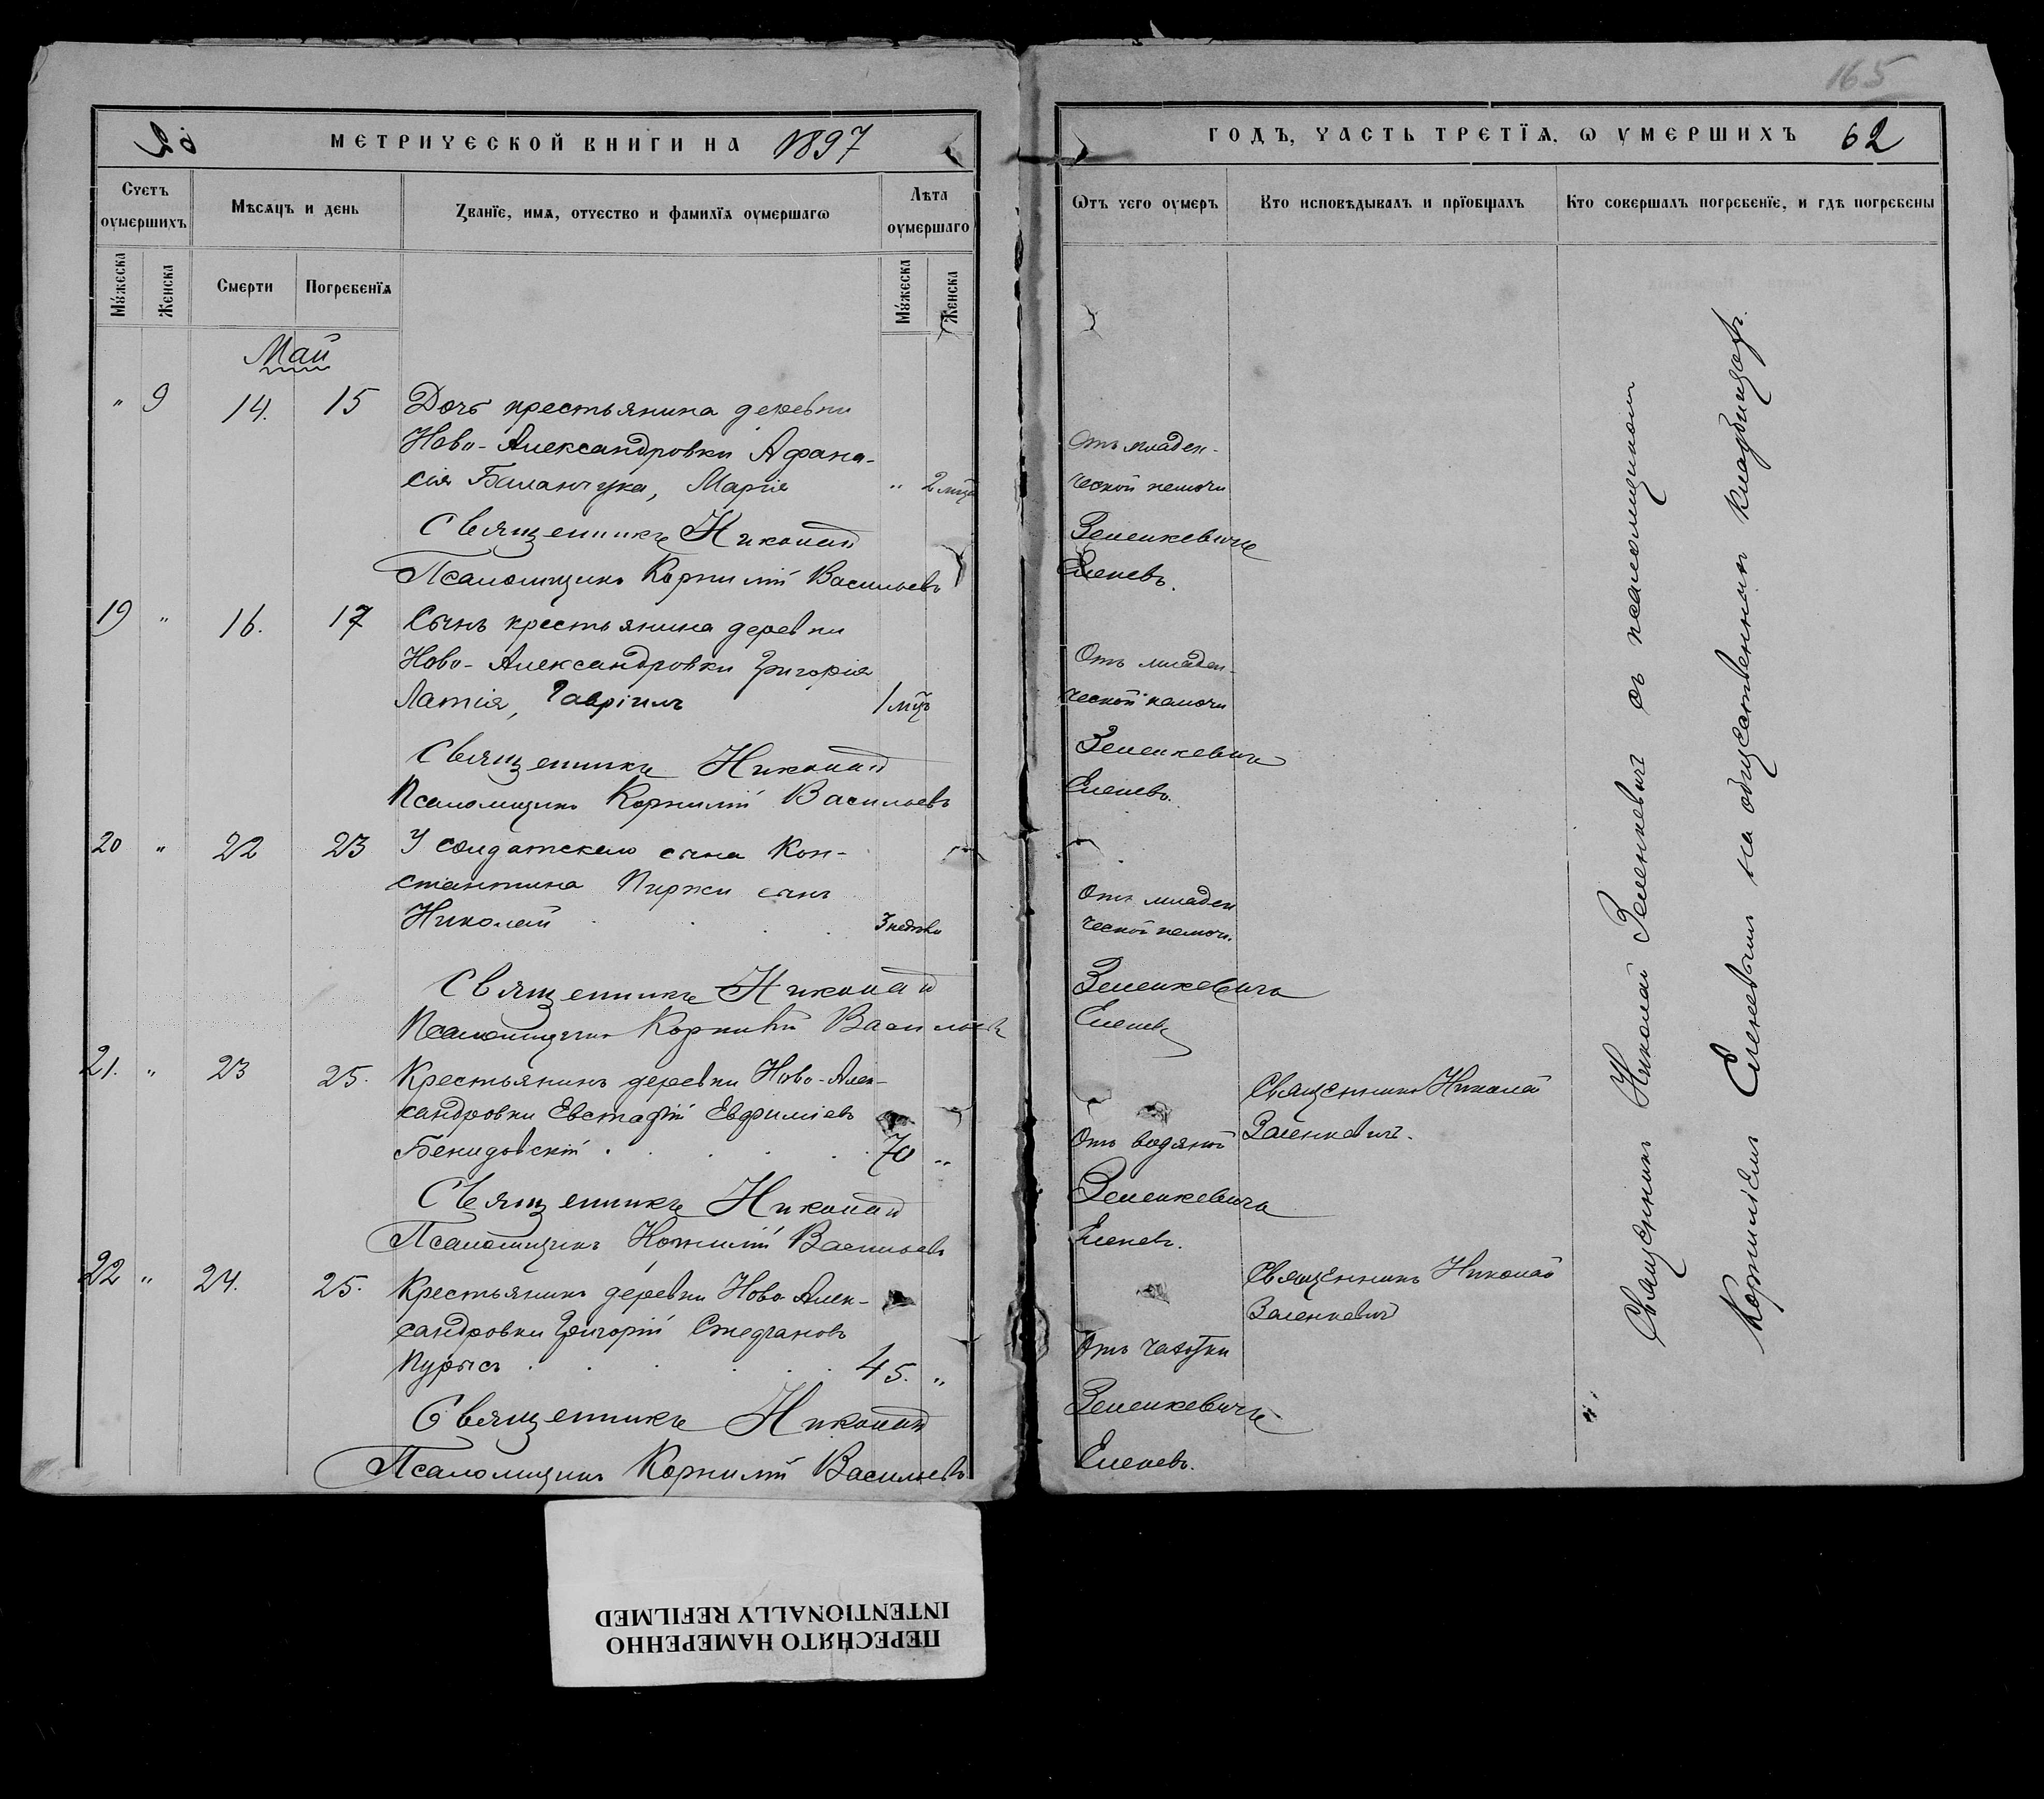 165
МЕТРИЧЕСКОЙ КНИГИ НА 1897
ГОДЪ, ЧАСТЬ ТРЕТІЯ, Ѡ УМЕРШИХЪ 62
Счетъ оумершихъ
Мѣсяцъ и день
Званїе, имѧ, отчество и фамилїѧ оумершагѡ
Лѣта оумершаго
Ѿтъ чего оумеръ
Кто исповѣдывалъ и прїобщалъ
Кто совершалъ погребенїе, и гдѣ погребены
Мꙋжеска
Женска
Смерти
Погребенїѧ
Мꙋжеска
Женска
Май
" 9 14. 15 Дочь крестьянина деревни
Ново-Александровки Афана-
сія Баланчука, Марія " 2 мца
Отъ младен-
ческой немочи
Священникъ Николай Зеленкевичъ
Псаломщикъ Корнилій Васильевъ Еленевъ.
19 " 16. 17 Сынъ крестьянина деревни
Ново-Александровки Григорія
Латія, Гавріилъ 1 мцъ
Отъ младен-
ческой немочи
Священникъ Николай Зеленкевичъ
Псаломщикъ Корнилій Васильевъ Еленевъ.
20 " 22 23 У солдатскаго сына Кон-
стантина Пиржи сынъ
Николай 3 недѣли
Отъ младен
ческой немочи.
Священникъ Николай Зеленкевичъ
Псаломщикъ Корнилій Васильевъ Еленевъ
21. " 23 25. Крестьянинъ деревни Ново-Алек-
сандровки Евстафій Евфиміевъ
Бенидовскій 70 "
Отъ водяной
Священникъ Николай
Зеленкевичъ.
Священникъ Николай Зеленкевичъ
Псаломщикъ Корнилій Васильевъ Еленевъ.
22 " 24. 25. Крестьянинъ деревни Ново-Алек-
сандровки Григорій Стефановъ
Пурысъ 45. "
Отъ чахотки
Священникъ Николай
Зеленкевичъ
Священникъ Николай Зеленкевичъ
Псаломщикъ Корнилій Васильевъ Еленевъ.
Священникъ Николай Зеленкевичъ съ псаломщикомъ
Корниліемъ Еленевымъ на общественномъ кладбищѣ.
ПЕРЕСНЯТО НАМЕРЕННО
INTENTIONALLY REFILMED